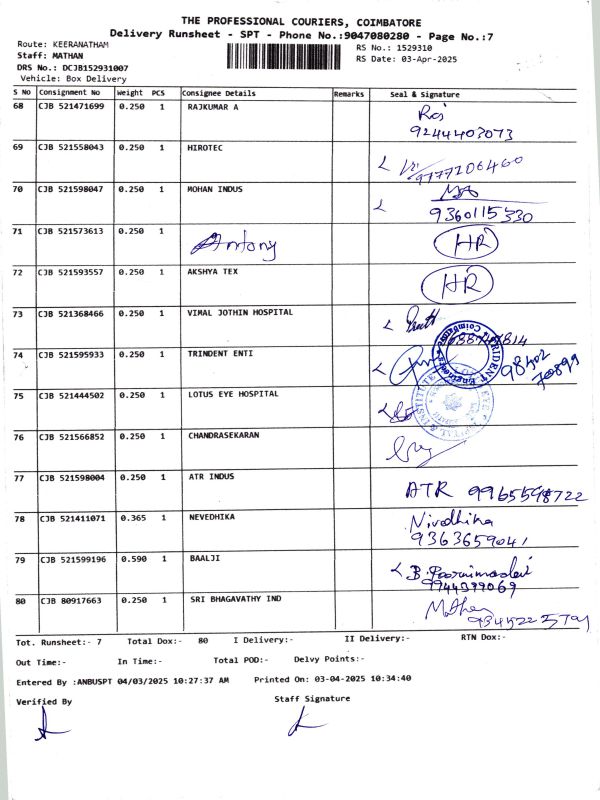 THE PROFESSIONAL COURIERS, COIMBATORE
Delivery Runsheet - SPT - Phone No.:9047080280 - Page No.:7
Route: KEERANATHAM
RS No.: 1529310
Staff: MATHAN
RS Date: 03-Apr-2025
DRS No.: DCJB152931007
Vehicle: Box Delivery
S No Consignment No Weight PCS Consignee Details Remarks Seal & Signature
68 CJB 521471699 0.250 1 RAJKUMAR A Raj
9244403073
69 CJB 521558043 0.250 1 HIROTEC
9777206460
70 CJB 521598047 0.250 1 MOHAN INDUS
9360115330
71 CJB 521573613 0.250 1 Antony HR
72 CJB 521593557 0.250 1 AKSHYA TEX HR
73 CJB 521368466 0.250 1 VIMAL JOTHIN HOSPITAL
74 CJB 521595933 0.250 1 TRINDENT ENTI
98402
70899
75 CJB 521444502 0.250 1 LOTUS EYE HOSPITAL
76 CJB 521566852 0.250 1 CHANDRASEKARAN
77 CJB 521598004 0.250 1 ATR INDUS ATR 9965598722
78 CJB 521411071 0.365 1 NEVEDHIKA Nivedhika
9363659041
79 CJB 521599196 0.590 1 BAALJI B. Poornimadevi
9944399069
80 CJB 80917663 0.250 1 SRI BHAGAVATHY IND Mathan
Tot. Runsheet:- 7 Total Dox:- 80 I Delivery:- II Delivery:- RTN Dox:-
Out Time:- In Time:- Total POD:- Delvy Points:-
Entered By :ANBUSPT 04/03/2025 10:27:37 AM Printed On: 03-04-2025 10:34:40
Verified By Staff Signature